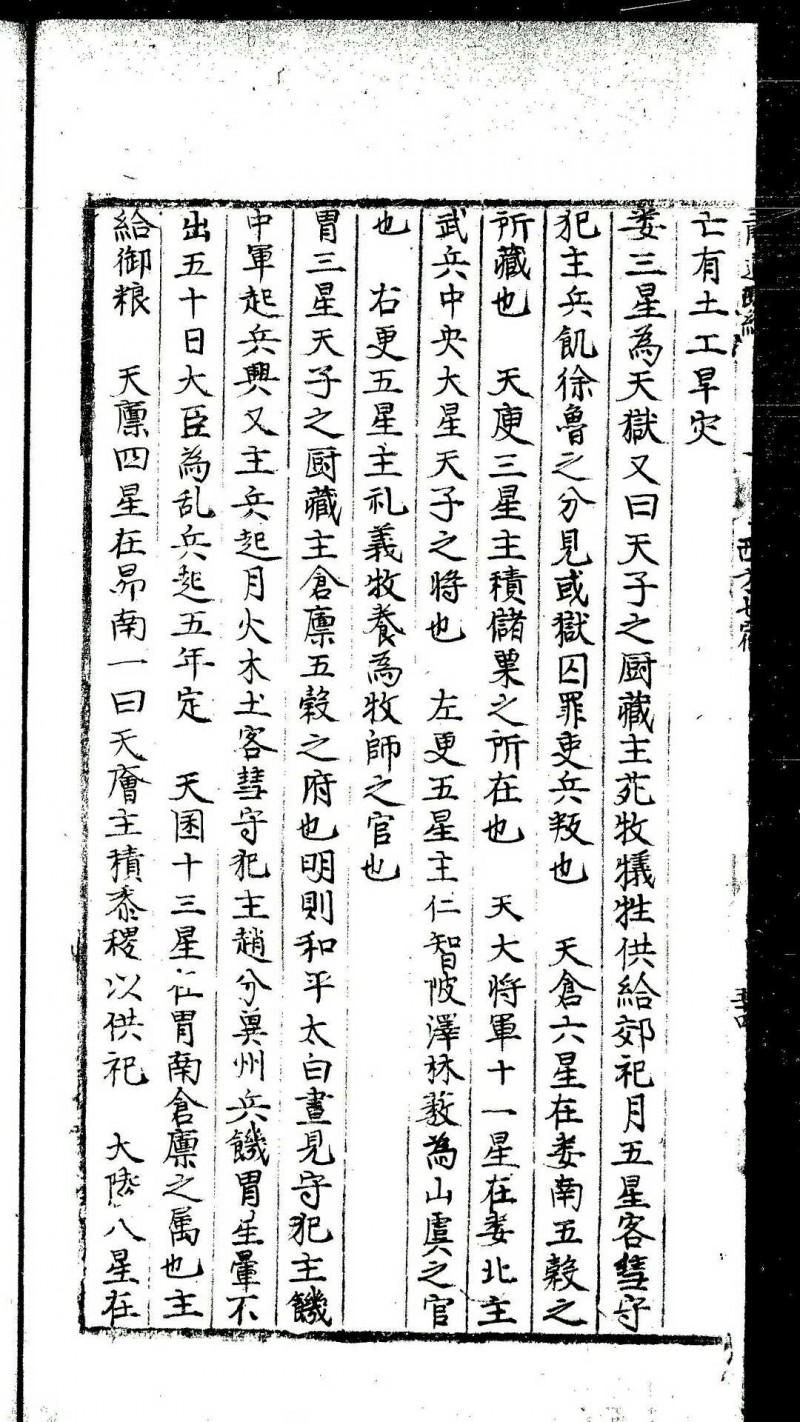 西方七宿
亡有土工旱灾
娄三星為天獄又曰天子之厨藏主苑牧犠牲供給郊祀月五星客彗守
犯主兵飢徐魯之分見或獄囚罪吏兵叛也　天倉六星在娄南五穀之
所藏也　天庾三星主積儲粟之所在也　天大将軍十一星在娄北主
武兵中央大星天子之将也　左更五星主仁智陂澤林薮為山虞之官
也　右更五星主礼義牧養為牧師之官也
胃三星天子之厨藏主倉廪五穀之府也明則和平太白晝見守犯主饑
中軍起兵興又主兵起月火木土客彗守犯主趙分冀州兵饑胃星暈不
出五十日大臣為乱兵起五年定　天囷十三星在胃南倉廪之属也主
給御粮　天廪四星在昴南一曰天廥主積黍稷以供祀　大陵八星在